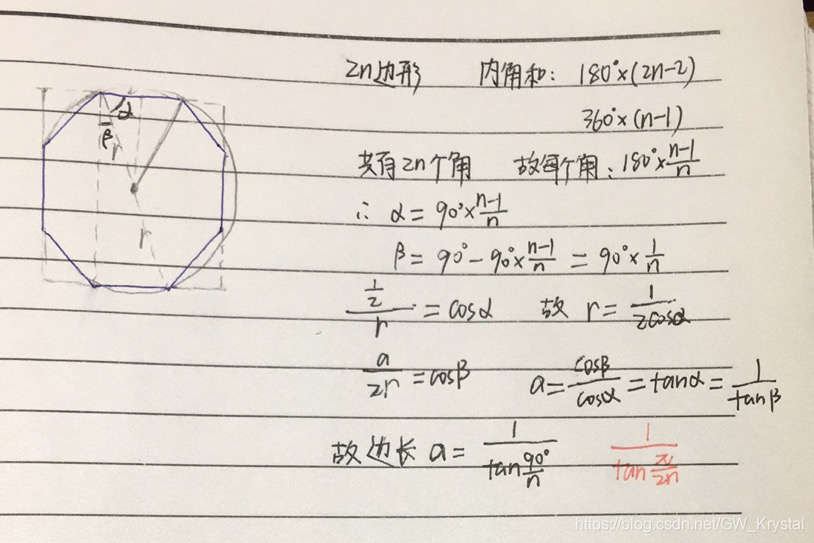 2n边形 内角和: 180°×(2n-2)
360°×(n-1)
共有2n个角 故每个角: 180°×\frac{n-1}{n}
∴ α = 90°×\frac{n-1}{n}
β = 90° - 90°×\frac{n-1}{n} = 90°×\frac{1}{n}
\frac{\frac{1}{2}}{r} = cosα 故 r = \frac{1}{2cosα}
\frac{a}{2r} = cosβ a = \frac{cosβ}{cosα} = tanα = \frac{1}{tanβ}
故边长 a = \frac{1}{tan\frac{90°}{n}} \frac{1}{tan\frac{π}{2n}}
α
β
r
r
https://blog.csdn.net/GW_Krystal